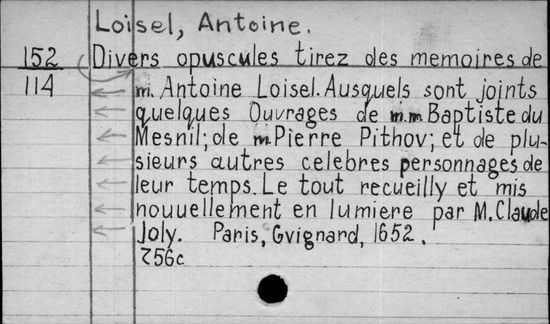 Loisel, Antoine.
152
114
Divers opuscules tirez des memoires de
m. Antoine Loisel. Ausquels sont joints
quelques Ouvrages de m.m. Baptiste du
Mesnil; de m. Pierre Pithov; et de plu-
sieurs autres celebres personnages de
leur temps. Le tout recueilly et mis
nouuellement en lumiere par M. Claude
Joly. Paris, Gvignard, 1652.
756c